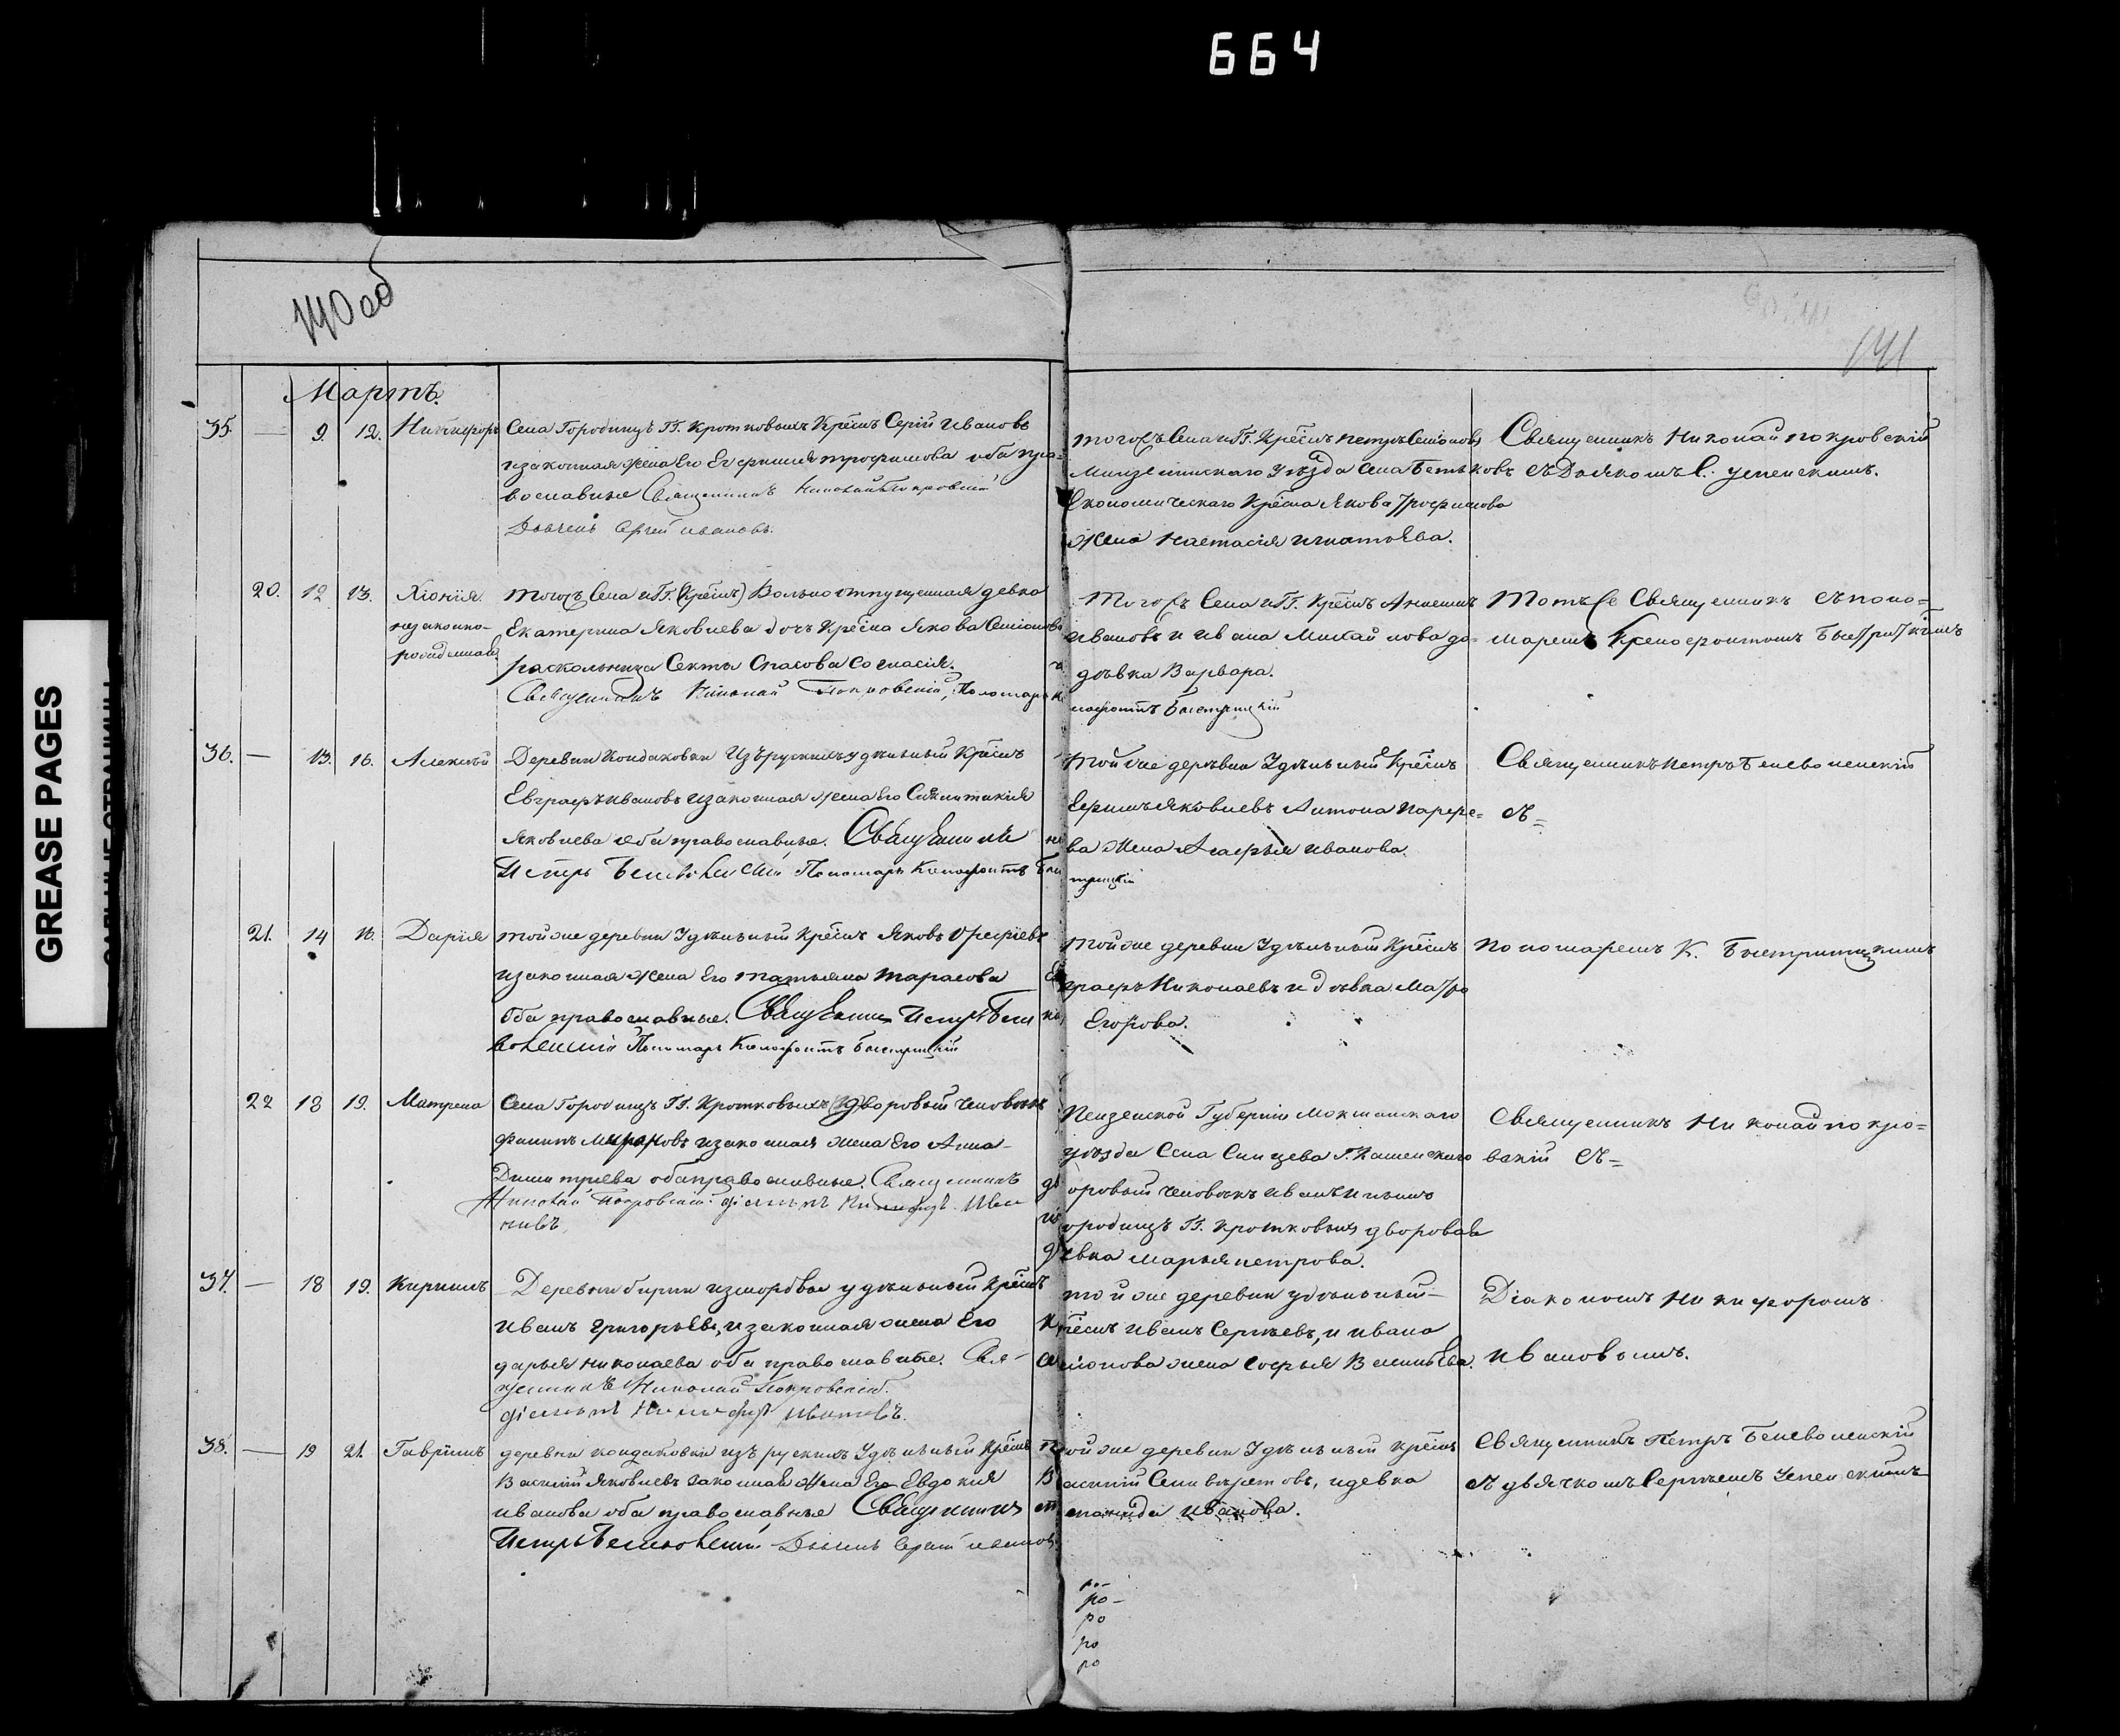 664
GREASE PAGES
140 об
141
Мартъ.
35. — 9. 12. Никифоръ
Села Городищъ ГГ. Кротковыхъ Крѣснъ Серій Ивановъ
изаконная жена Его Ефимія трофимова оба пра-
вославные Священникъ Николай Покровскій
Дьячекъ Сергій Ивановъ.
тогожъ Села и ГГ. Крѣснъ Петръ Семіоновъ
Мензелинскаго Уѣзда Села Бетьковъ
Економическаго Крѣсна Якова Трофимова
Жена Настасія игнатьева.
Священникъ Николай покровскій
съ Дьякомъ С. успенскимъ.
20. 12 13. Хіонія
незаконно-
рожденная
Тогожъ Села и ГГ. (Крѣснъ) Вольноотпущенная девка
Екатерина Яковлева дочь Крѣсна Якова Семіонова
раскольница Секты Спасова Согласія.
Священникъ Николай Покровскій, Пономарь К
нофонтъ Быстрицкій
Тогожъ Села и ГГ. Крѣснъ
Ивановъ и Ивана Михайлова до-
дѣвка Варвара.
Тотъже Священникъ съ поно-
маремъ Ксенофонтомъ Быстрицкимъ
36. — 13. 16. Алексѣй
Деревни Кондаковки Изърускихъ удѣльный Крѣснъ
Евграфъ Ивановъ изаконная Жена Его Синклитикія
Яковлева оба православные. Священникъ
Петръ Беневоленскій Пономарь Ксенофонтъ Быс
трицкій
Той же деревни Удѣльный Крѣснъ
Ефимъ Яковлевъ Антона
ва Жена Агафья Иванова.
Священникъ Петръ Беневоленскій
съ=
21. 14 16. Дарія
той же деревни Удѣльный Крѣснъ Яковъ
изаконная Жена Его татьяна тарасова
Оба православные. Священникъ Петръ Бене
воленскій Пономарь Ксенофонтъ Быстрицкій
Той же деревни Удѣльный Крѣснъ
графъ Николаевъ и дѣвка
Егорова.
Пономаремъ К. Быстрицкимъ
22 18 19. Матрена
Села Городищъ ГГ. Кротковыхъ дворовый человѣкъ
Филипъ Мироновъ изаконная жена Его Анна
Димитріева оба православные. Священникъ
Николай Покровскій діаконъ Никифоръ Ива
новъ
Пензенской Губерніи Мокшанскаго
уѣзда Села
дворовый человѣкъ Иванъ
городищъ ГГ. Кротковыхъ дворовая
дѣвка Марья петрова.
Священникъ Николай покро=
вскій съ=
37. — 18 19. Кирилъ
Деревни бирли измордвы удѣльный Крѣснъ
Иванъ Григорьевъ, изаконная жена Его
дарья Николаева оба православные. Свя-
щенникъ Николай Покровскій.
діаконъ Никифоръ Ивановъ.
той же деревни удѣльный
Крѣснъ Иванъ Сергѣевъ, и Ивана
Семіонова жена Софья Васильева.
Діакономъ Никифоромъ
Ивановымъ.
38. — 19 21. Гаврілъ
деревни кондаковки изъ рускихъ Удѣльный Крѣснъ
Василій Яковлевъ законная Жена Его Евдокия
иванова оба православные Священникъ
Петръ Беневоленскій Дьячекъ Сергій Ивановъ.
Той же деревни Удѣльный крѣснъ
Василій, идевка
иванова.
Священникъ Петръ Беневоленскій
съ дьячкомъ Сергѣемъ Успенскимъ
ро-
ро-
ро
ро
ро